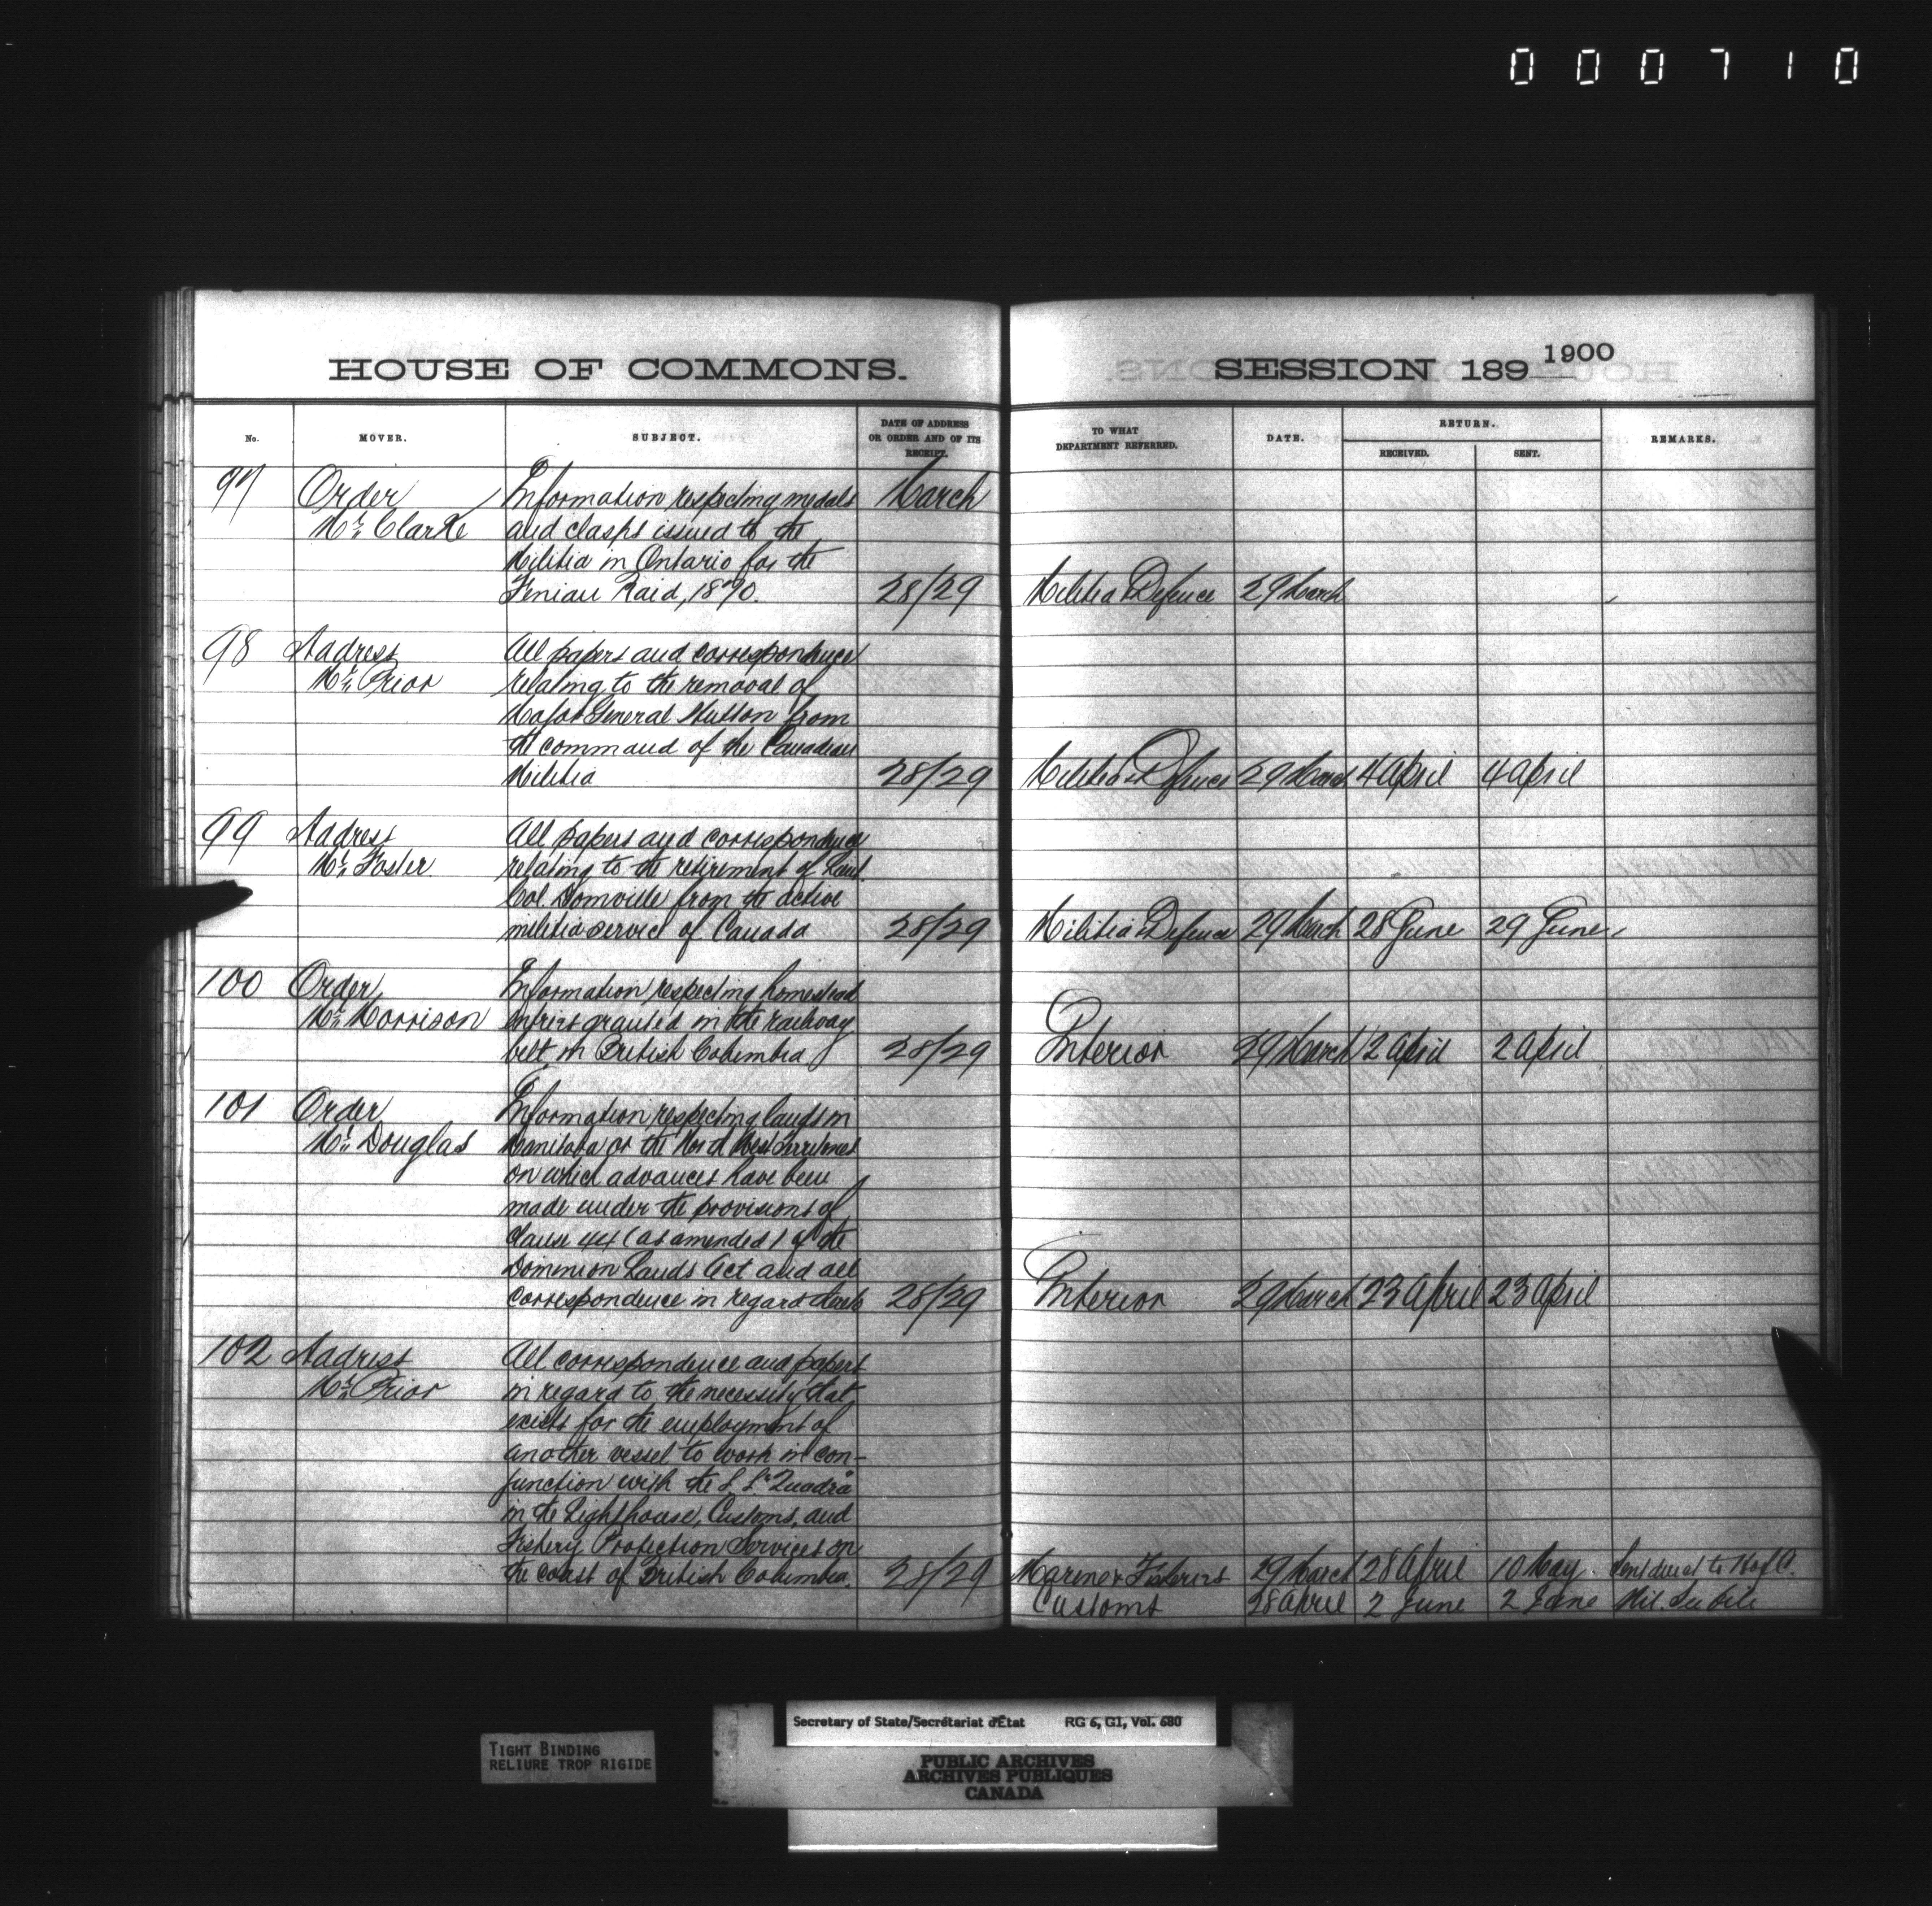 000710
HOUSE OF COMMONS.
SESSION 189 1900
No.
MOVER.
SUBJECT.
DATE OF ADDRESS
OR ORDER AND OF ITS
RECEIPT.
TO WHAT
DEPARTMENT REFERRED.
DATE.
RETURN.
RECEIVED.
SENT.
REMARKS.
97 Order Information respecting medals March
Mr. Clarke and clasps issued to the
Militia in Ontario for the
Fenian Raid, 1870. 28/29 Militia & Defence 29 March
98 Address All papers and correspondence
Mr. Prior relating to the removal of
Major General Hutton from
the command of the Canadian
Militia 28/29 Militia & Defence 29 March 4 April 4 April
99 Address All papers and correspondence
Mr. Foster relating to the retirement of Lieut.
Col. Domville from the active
militia service of Canada 28/29 Militia & Defence 29 March 28 June 29 June
100 Order Information respecting homestead
Mr. Morrison entries granted in the railway
belt in British Columbia 28/29 Interior 29 March 2 April 2 April
101 Order Information respecting lands in
Mr. Douglas Manitoba or the North West Territories
on which advances have been
made under the provisions of
Clause 44 (as amended) of the
Dominion Lands Act and all
correspondence in regard thereto 28/29 Interior 29 March 23 April 23 April
102 Address All correspondence and papers
Mr. Prior in regard to the necessity that
exists for the employment of
another vessel to work in con-
junction with the S.S. "Quadra"
in the Lighthouse, Customs, and
Fishery Protection Services on
the coast of British Columbia. 28/29 Marine & Fisheries 29 March 28 April 10 May Sent direct to H of C.
Customs 28 April 2 June 2 June Nil. See file
Secretary of State/Secrétariat d'État RG 6, G1, Vol. 680
TIGHT BINDING
RELIURE TROP RIGIDE
PUBLIC ARCHIVES
ARCHIVES PUBLIQUES
CANADA